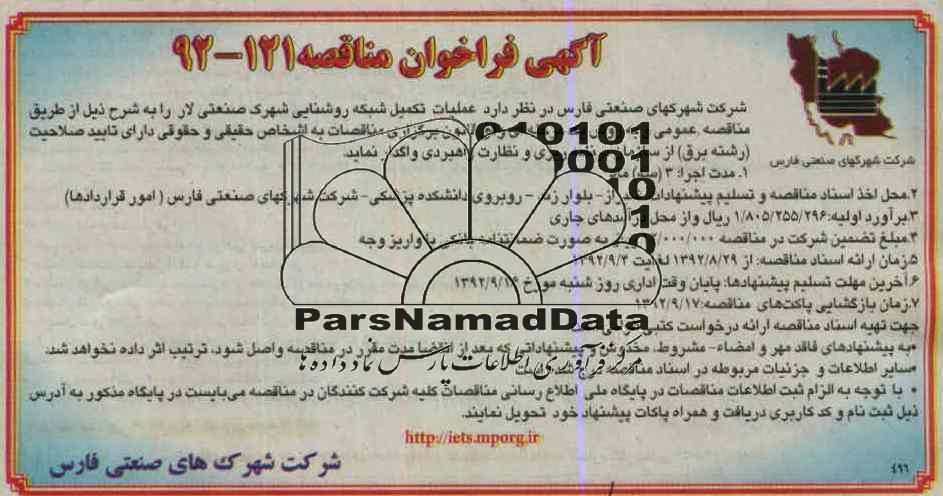 آگهی فراخوان مناقصه ۱۲۱–۹۲
شرکت شهرکهای صنعتی فارس
شرکت شهرکهای صنعتی فارس در نظر دارد عملیات تکمیل شبکه روشنایی شهرک صنعتی لار را به شرح ذیل از طریق
مناقصه عمومی قانون برگزاری مناقصات به اشخاص حقیقی و حقوقی دارای تایید صلاحیت
(رشته برق) از و نظارت راهبردی واگذار نماید.
۱. مدت اجرا: ۳ (سه) ماه
۲.محل اخذ اسناد مناقصه و تسلیم پیشنهادات – بلوار – روبروی دانشکده پزشکی – شرکت شهرکهای صنعتی فارس ( امور قراردادها)
۳.برآورد اولیه:۱/۸۰۵/۲۵۵/۲۹۶ ریال واز محل درآمدهای جاری
۴.مبلغ تضمین شرکت در مناقصه به صورت ضمانتنامه بانکی یا واریز وجه
۵.زمان ارائه اسناد مناقصه: از ۱۳۹۲/۸/۲۹ لغایت ۱۳۹۲/۹/۳
۶.آخرین مهلت تسلیم پیشنهادها: پایان وقت اداری روز شنبه مورخ
۷.زمان بازگشایی پاکت‌های مناقصه:۱۳۹۲/۹/۱۷
جهت تهیه اسناد مناقصه ارائه درخواست کتبی
•به پیشنهادهای فاقد مهر و امضاء- مشروط، مخدوش و پیشنهاداتی که بعد از انقضا مدت مقرر در مناقصه واصل شود، ترتیب اثر داده نخواهد شد.
•سایر اطلاعات و جزئیات مربوطه در اسناد مناقصه
• با توجه به الزام ثبت اطلاعات مناقصات در پایگاه ملی اطلاع رسانی مناقصات کلیه شرکت کنندگان در مناقصه می‌بایست در پایگاه مذکور به آدرس
ذیل ثبت نام و کد کاربری دریافت و همراه پاکات پیشنهاد خود تحویل نمایند.
http://iets.mporg.ir
شرکت شهرک های صنعتی فارس
۴۹۶
ParsNamadData
مرکز فرآوری اطلاعات پارس نماد داده ها